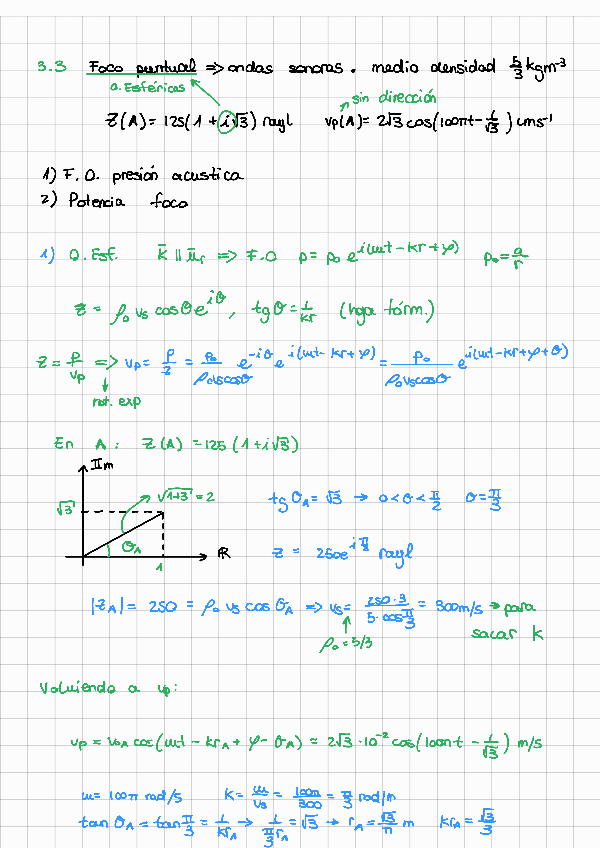 3.3 Foco puntual => ondas sonoras. medio densidad 5/3 kgm⁻³
o. Esféricas
sin dirección
Z(A) = 125(1 + i√3) rayl vp(A) = 2√3 cos(100πt - 1/√3) cms⁻¹
1) F.O. presión acustica
2) Potencia foco
1) O. Esf. k̄ || ūr => F.O p = p₀ e^{i(ωt - kr + φ)} p₀ = a/r
Z = ρ₀ vs cosθ e^{iθ}, tgθ = 1/kr (hoja fórm.)
Z = p/vp => vp = p/Z = p₀/(ρ₀vscosθ) e^{-iθ} e^{i(ωt - kr + φ)} = p₀/(ρ₀vscosθ) e^{i(ωt - kr + φ + θ)}
not. exp
En A: Z(A) = 125 (1 + i√3)
IIm
√(1+3) = 2
√3
θA
R
1
tg θA = √3 → 0 < θ < π/2 θ = π/3
Z = 250e^{iπ/3} rayl
|ZA| = 250 = ρ₀ vs cos θA => vs = (250·3)/(5·cos π/3) = 300m/s → para
sacar k
ρ₀ = 5/3
Volviendo a vp:
vp = v₀A cos(ωt - krA + φ - θA) = 2√3·10⁻² cos(100πt - 1/√3) m/s
ω = 100π rad/s k = ω/vs = 100π/300 = π/3 rad/m
tan θA = tan π/3 = 1/krA → 1/(π/3 rA) = √3 → rA = √3/π m krA = √3/3